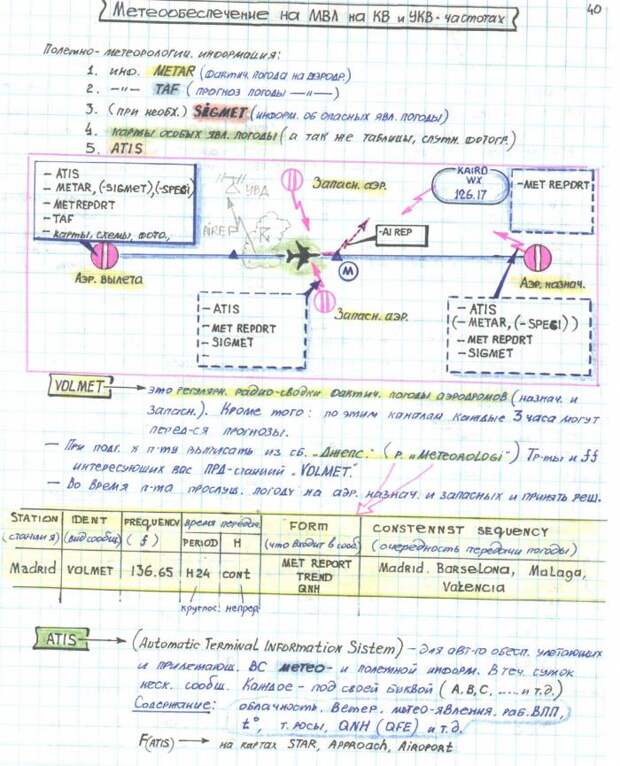 40
Метеообеспечение на МВЛ на КВ и УКВ-частотах
Полетно-метеорологич. информация:
1. инф. METAR (фактич. погода на аэродр.)
2. -"- TAF (прогноз погоды -"-)
3. (при необх.) SIGMET (информ. об опасных явл. погоды)
4. карты особых явл. погоды (а так же таблицы, спутн. фотогр.)
5. ATIS
- ATIS
- METAR, (-SIGMET), (-SPECI)
- METREPORT
- TAF
- карты, схемы, фото,
Аэр. вылета
УВД
AiREP
Запасн. аэр.
-AIREP
M
KAIRO
WX
126.17
- MET REPORT
Аэр. назнач.
- ATIS
- MET REPORT
- SIGMET
-
Запасн. аэр.
- ATIS
(- METAR, (-SPECI))
- MET REPORT
- SIGMET
VOLMET → это регулярн. радио-сводки фактич. погоды аэродромов (назнач. и
запасн.). Кроме того: по этим каналам каждые 3 часа могут
перед-ся прогнозы.
- При подг. к п-ту выписать из сб. „Джепс." (р. „METEOROLOGI") Тр-ты и ff
интересующих вас ПРД-станций „VOLMET."
- Во время п-та прослуш. погоду на аэр. назнач. и запасных и принять реш.
STATION IDENT FREQUENCY время передач. FORM CONSTENNST SEQUENCY
(станция) (вид сообщ) (f) PERIOD H (что входит в сооб.) (очередность передачи погоды)
Madrid VOLMET 136.65 H24 cont MET REPORT Madrid. BarseLona, MaLaga,
TREND Valencia
QNH
круглос. непрер.
ATIS → (Automatic Terminal Information Sistem) - для авт-го обесп. улетающих
и прилетающ. ВС метео- и полетной информ. В теч. суток
неск. сообщ. Каждое - под своей буквой (A, B, C, ..... и т.д.)
Содержание: облачность. Ветер. метео-явления, раб. ВПП,
t°, т. росы, QNH (QFE) и т.д.
F(ATIS) → на картах STAR, APPROACH, AIROPORT